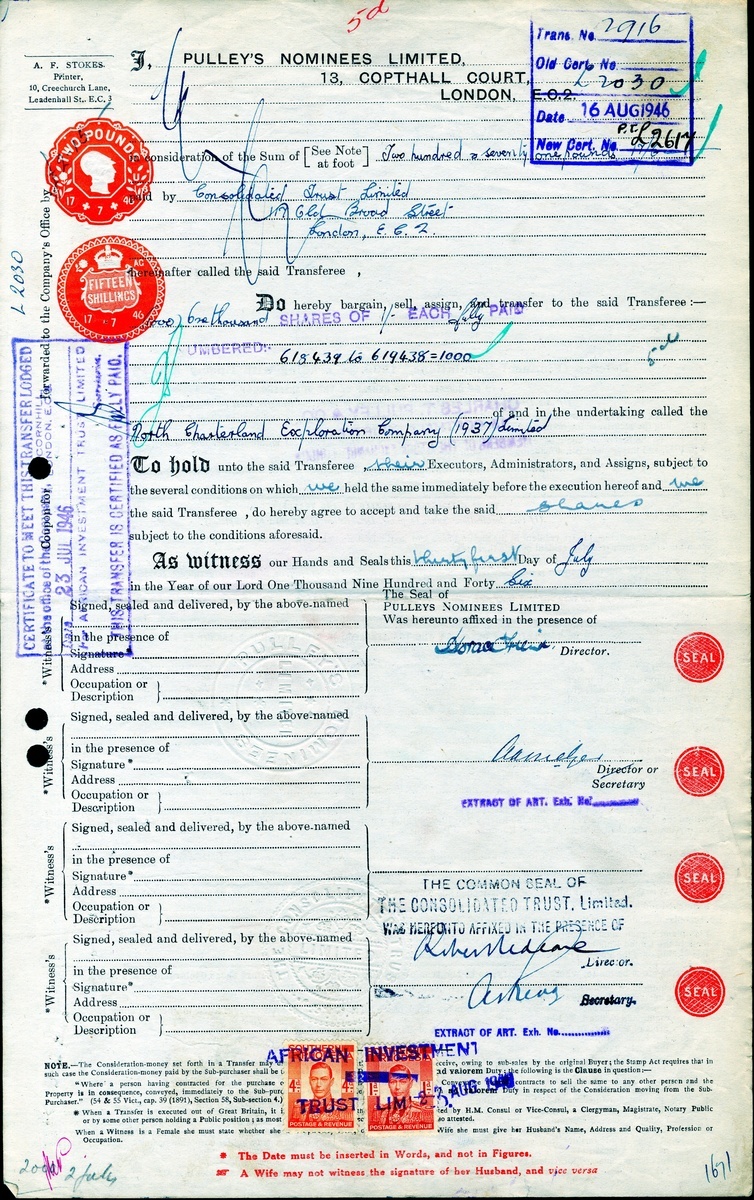 5d
A. F. STOKES
Printer,
10, Creechurch Lane,
Leadenhall St. E.C. 3
I, PULLEY'S NOMINEES LIMITED,
13, COPTHALL COURT,
LONDON, E.C.2.
Trans. No 2916
Old Cert. No L2030
Date 16 AUG 1946
New Cert. No. L2617
TWO POUNDS
17 7 46
in consideration of the Sum of [See Note at foot] Two hundred & seventy one pounds
paid by Consolidated Trust Limited
117 Old Broad Street
London, E.C.2.
hereinafter called the said Transferee ,
FIFTEEN
SHILLINGS
17 7 46
L2030
Do hereby bargain, sell, assign, and transfer to the said Transferee:—
One thousand SHARES OF 1/- EACH fully PAID
UMBERED:- 618439 to 619438=1000
5d
of and in the undertaking called the
North Charterland Exploration Company (1937) Limited
To hold unto the said Transferee their Executors, Administrators, and Assigns, subject to
the several conditions on which we held the same immediately before the execution hereof and we
the said Transferee , do hereby agree to accept and take the said shares
subject to the conditions aforesaid.
As witness our Hands and Seals this thirty first Day of July
in the Year of our Lord One Thousand Nine Hundred and Forty Six
CERTIFICATE TO MEET THIS TRANSFER LODGED
23 JUL 1946
AFRICAN INVESTMENT TRUST LIMITED
THIS TRANSFER IS CERTIFIED AS FULLY PAID.
forwarded to the Company's Office by
Coupon for
Signed, sealed and delivered, by the above-named
in the presence of
Signature*
Address
Occupation or
Description
*Witness's
The Seal of
PULLEYS NOMINEES LIMITED
Was hereunto affixed in the presence of
Director.
SEAL
Signed, sealed and delivered, by the above-named
in the presence of
Signature*
Address
Occupation or
Description
*Witness's
Director or
Secretary
SEAL
EXTRACT OF ART. Exh. No.
Signed, sealed and delivered, by the above-named
in the presence of
Signature*
Address
Occupation or
Description
*Witness's
SEAL
THE COMMON SEAL OF
THE CONSOLIDATED TRUST, Limited.
WAS HEREUNTO AFFIXED IN THE PRESENCE OF
Signed, sealed and delivered, by the above-named
in the presence of
Signature*
Address
Occupation or
Description
*Witness's
Director.
Secretary.
SEAL
EXTRACT OF ART. Exh. No.
AFRICAN INVESTMENT
TRUST LIM
AUG 1946
POSTAGE & REVENUE
POSTAGE & REVENUE
NOTE.—The Consideration-money set forth in a Transfer may owing to sub-sales by the original Buyer; the Stamp Act requires that in
such case the Consideration-money paid by the Sub-purchaser shall be ad valorem Duty; the following is the Clause in question:—
"Where a person having contracted for the purchase contracts to sell the same to any other person and the
Property is in consequence, conveyed, immediately to the Sub-purchaser Duty in respect of the Consideration moving from the Sub-
Purchaser." (54 & 55 Vict., cap. 39 (1891), Section 58, Sub-section 4.)
* When a Transfer is executed out of Great Britain, it by H.M. Consul or Vice-Consul, a Clergyman, Magistrate, Notary Public
or by some other person holding a Public position; as most so attested.
When a Witness is a Female she must state whether she Wife she must give her Husband's Name, Address and Quality, Profession or
Occupation.
* The Date must be inserted in Words, and not in Figures.
☞ A Wife may not witness the signature of her Husband, and vice versa
1671